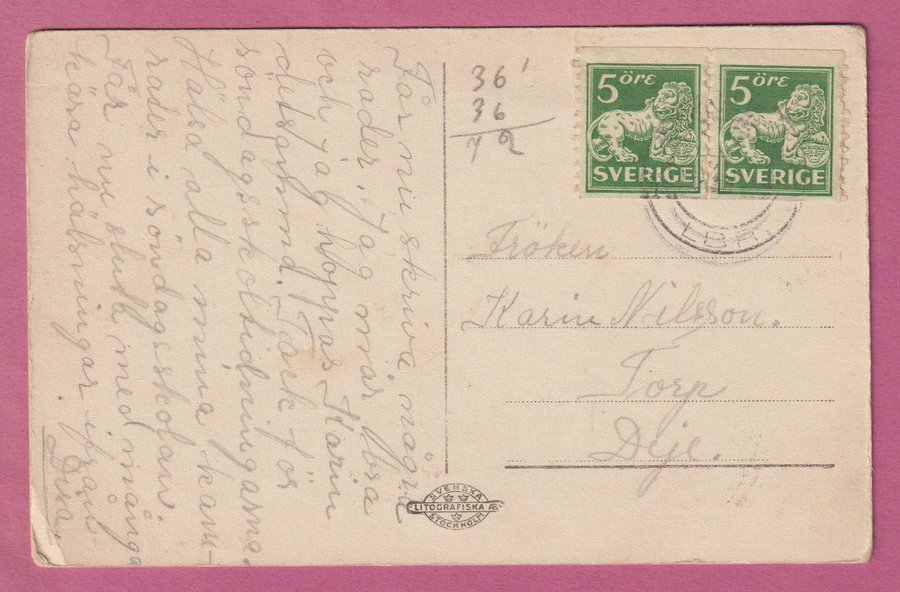 Får nu skriva några
rader. Jag mår bra
och jag hoppas Karin
detsamma. Tack för
söndagsskoltidningarna.
Hälsa alla mina kam-
rater i söndagsskolan.
Får nu sluta med många
kära hälsningar ifrån
36'
36
72
5 ÖRE
SVERIGE
5 ÖRE
SVERIGE
LBP.
Fröken
Karin Nilsson.
Torp
Deje.
SVENSKA
LITOGRAFISKA Æ
STOCKHOLM